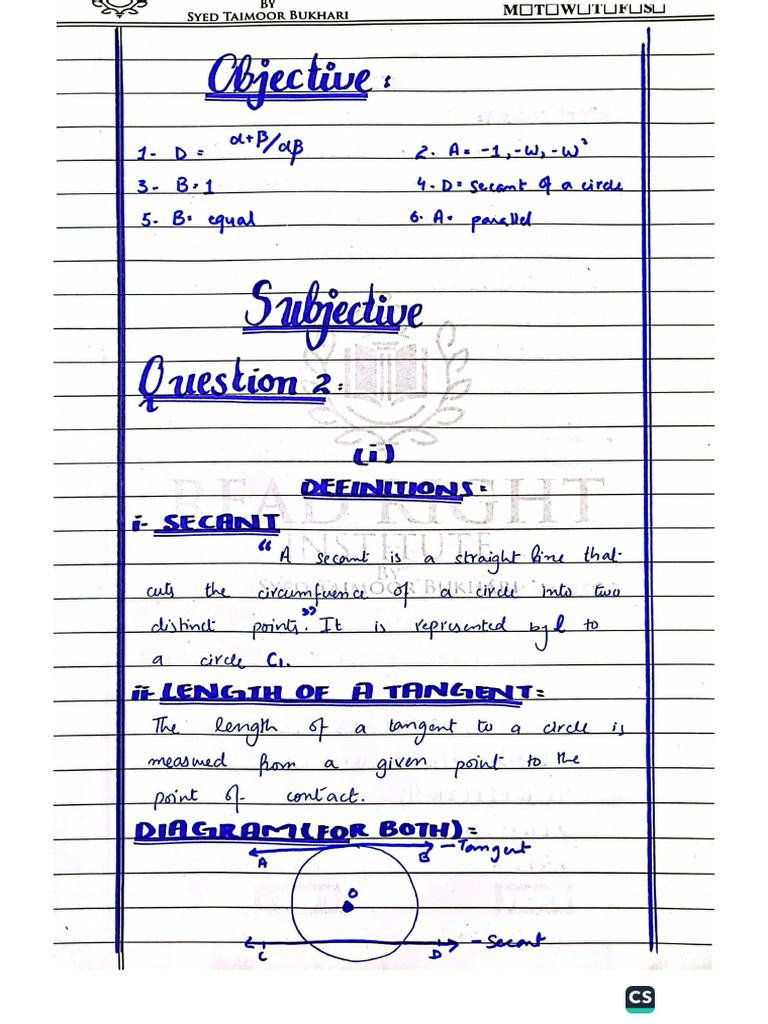 BY
SYED TAIMOOR BUKHARI
M□T□W□T□F□S□
Objective:
1- D = α+β/αβ
2. A = -1, -ω, -ω²
3- B = 1
4- D = secant of a circle
5- B = equal
6. A = parallel
Subjective
Question 2:
(i)
DEFINITIONS:
i- SECANT
“ A secant is a straight line that
cuts the circumfuence of a circle into two
distinct points.” It is represented by l to
a circle C₁.
ii- LENGTH OF A TANGENT:
The length of a tangent to a circle is
measured from a given point to the
point of contact.
DIAGRAM (FOR BOTH):
A B - Tangent
O
C D - Secant
READ RIGHT
INSTITUTE
BY
SYED TAIMOOR BUKHARI
CS